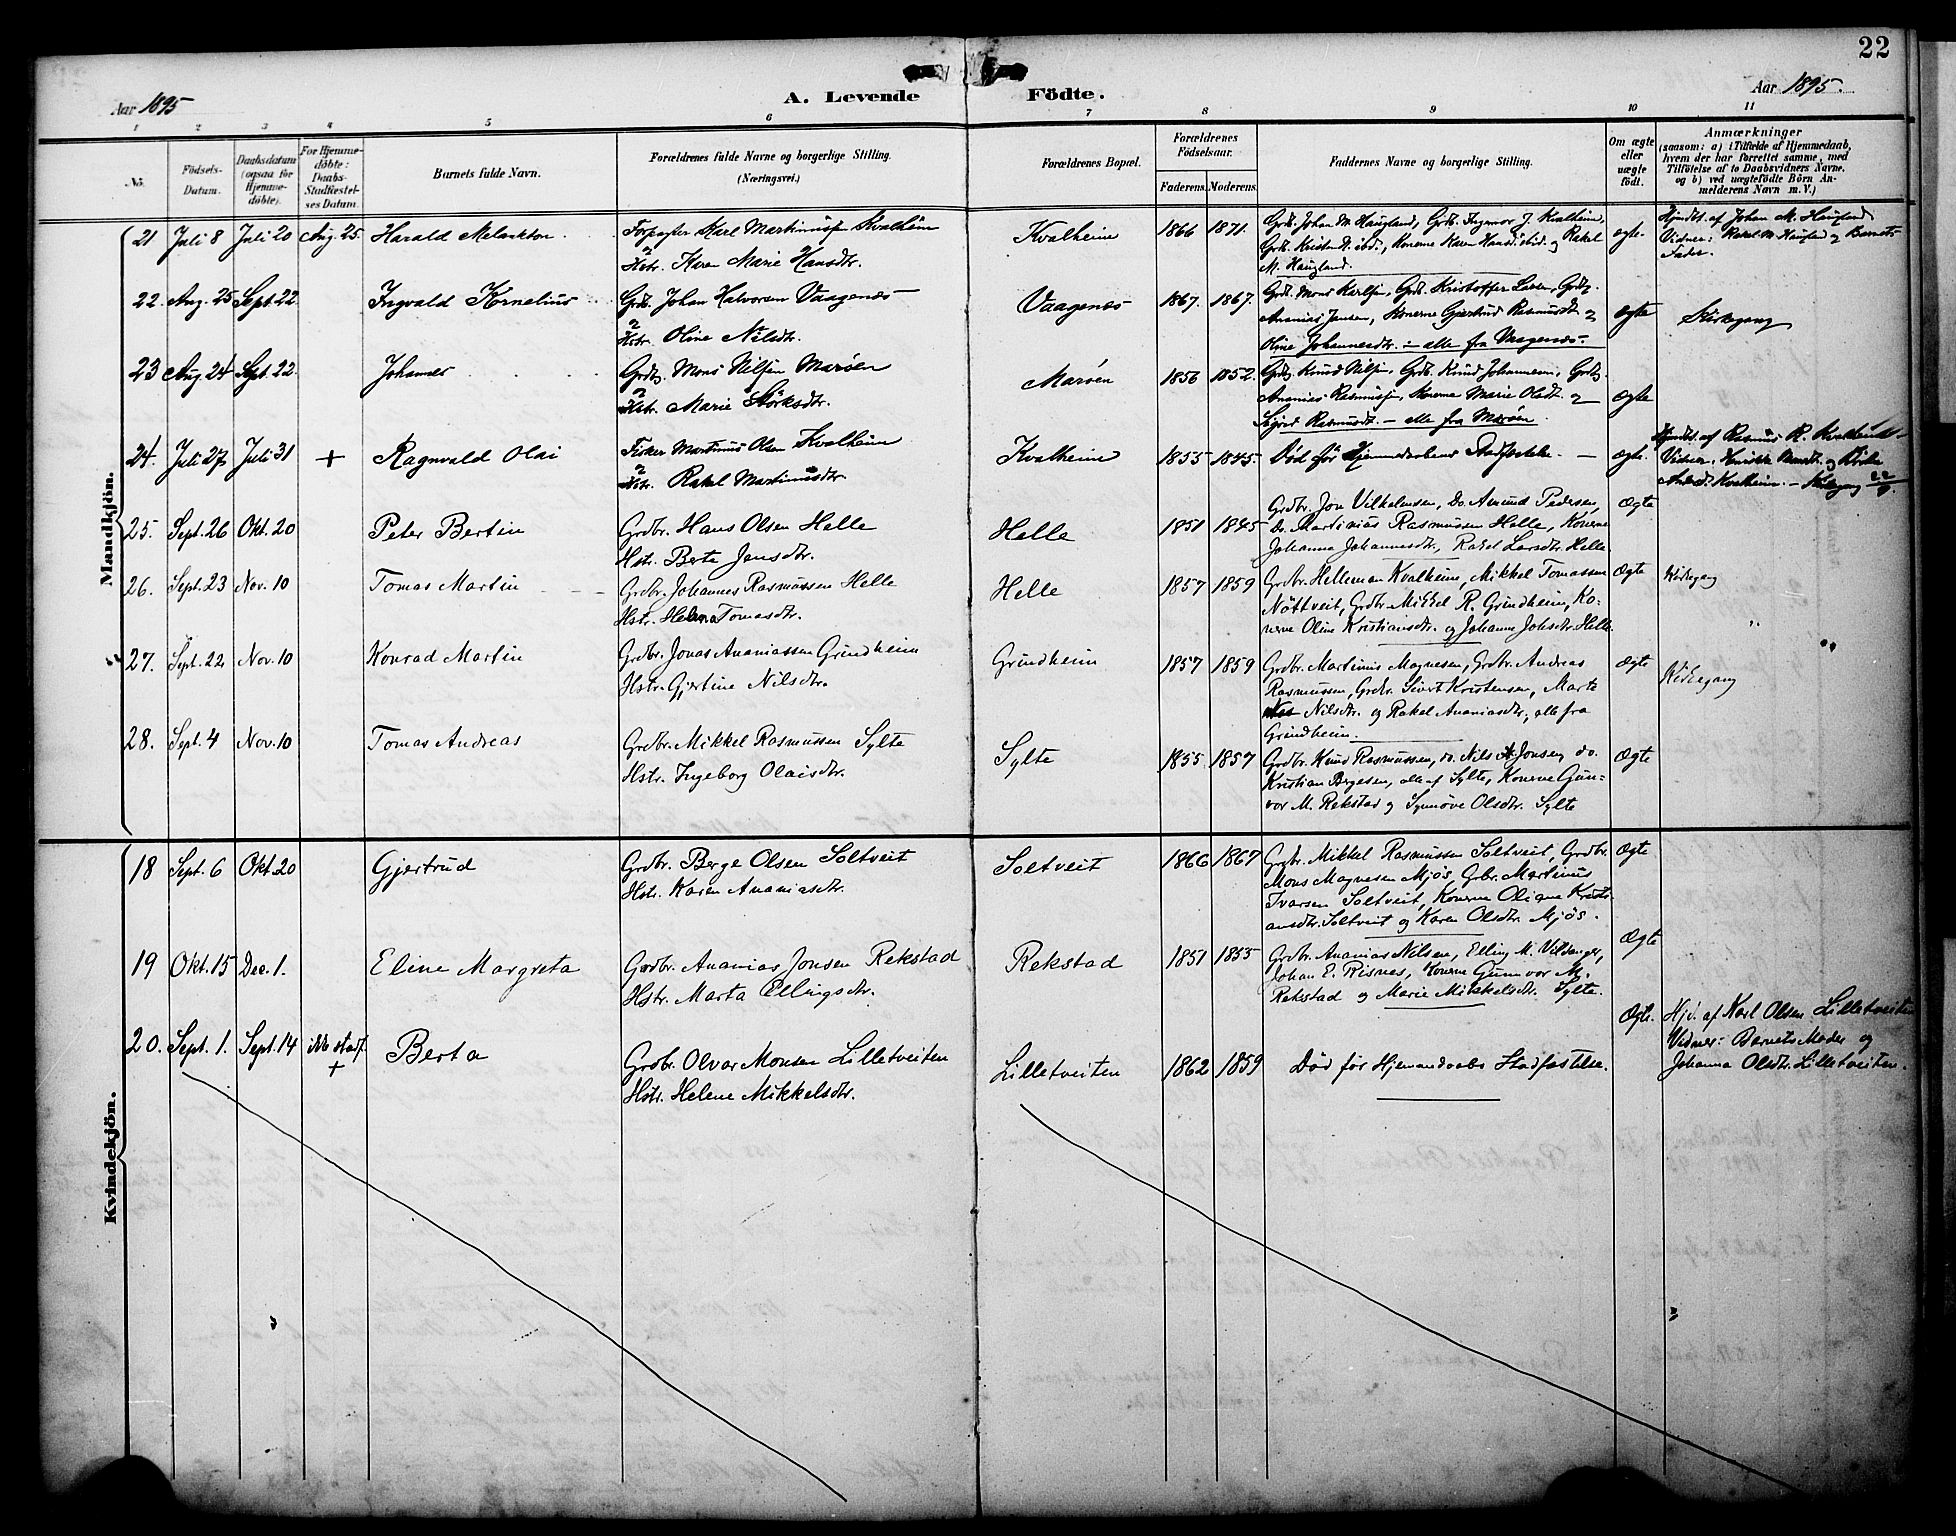 22
Aar 1895
A. Levende Födte.
Aar 1895.
1 2 3 4 5 6 7 8 9 10 11
No.
Födsels-
Datum.
Daabsdatum
(ogsaa for
Hjemme-
döbte).
For Hjemme-
döbte:
Daabs-
Stadfæstel-
ses Datum.
Barnets fulde Navn.
Forældrenes fulde Navne og borgerlige Stilling.
(Næringsvei.)
Forældrenes Bopæl.
Forældrenes
Födselsaar.
Faderens. Moderens.
Faddernes Navne og borgerlige Stilling.
Om ægte
eller
uægte
födt.
Anmærkninger
(saasom: a) i Tilfælde af Hjemmedaab,
hvem der har forrettet samme, med
Tilföielse af to Daabsvidners Navne.
og b) ved uægtefödte Börn An-
melderens Navn m. V.)
Mandkjön.
21 Juli 8 Juli 20 Aug. 25. Harald Melankton
Karl Kvalheim
Hstr. Karen Marie Hansdtr.
Kvalheim 1866 1871.
Grdb. Johan M. Haugland, Grdb. Ingmar J. Kvalheim,
Grdb. Kristen H. ibd., Konerne Karen Hansd. ibid. og Rakel
M. Haugland.
ægte.
Hjmdbt. af Johan M. Haugland
Vidner: Rakel M. Haugland og Barnets
Fader.
22. Aug. 25 Sept. 22. Ingvald Kornelius
Grdb. Johan Halvorsen Vaagenæs
Hstr. Oline Nilsdtr.
Vaagenæs 1867. 1867.
Grdb. Mons Karlsen, Grdb. Kristoffer Larsen, Grdb.
Ananias Jansen, Konerne Gjertrud Rasmusdt. og
Oline Johannesdtr. – alle fra Vaagenæs.
ægte Kirkegang
23 Aug. 24 Sept. 22. Johannes
Grdb. Mons Nilsen Marøen
Hstr. Marie Størksdtr.
Marøen 1856 1852.
Grdb. Knud Nilsen, Grdb. Knud Johannesen, Grdb.
Ananias Rasmussen, Konerne Marie Olsdt. og
Sigrid Rasmusdt. – alle fra Marøen.
ægte
24. Juli 27 Juli 31 + Ragnvald Olai
Fisker Martinus Olsen Kvalheim
Hstr. Rakel Martinusdtr
Kvalheim 1855 1845.
Død før Hjemmedaabens Stadfæstelse. –
ægte.
Hjmdbt. af Rasmus R. Kvalheim
Kvalheim. – Kirkegang
25. Sept. 26 Okt. 20 Peter Bertin
Grdbr. Hans Olsen Helle
Hstr. Berte Jansdtr.
Helle 1851 1845
Grdbr. Jon Vilhelmsen, Do. Amund Pedersen,
Do. Martinius Rasmussen Helle, Konerne
Johanna Johannesdtr., Rakel Larsdtr. Helle.
Ægte
26. Sept. 23 Nov. 10 Tomas Martin
Grdbr. Johannes Rasmussen Helle
Hstr. Helena Tomasdtr.
Helle 1857 1859
Grdbr. Helleman Kvalheim, Mikkel Tomassen
Nöttveit, Grdbr. Mikkel R. Grindheim, Ko-
nerne Oline Kristiansdtr. og Johanne Johsdtr. Helle.
Ægte Kirkegang
27. Sept. 22 Nov. 10 Konrad Martin
Grdbr. Jonas Ananiassen Grindheim
Hstr. Gjertine Nilsdtr.
Grindheim 1857 1859
Grdbr. Martinus Magnesen, Grdbr. Andreas
Rasmussen, Grdbr. Sivert Kristensen, Marta
Nilsdtr. og Rakel Ananiasdtr., alle fra
Grindheim.
Ægte Kirkegang
28. Sept. 4 Nov. 10 Tomas Andreas
Grdbr. Mikkel Rasmussen Sylte
Hstr. Ingeborg Olaisdtr.
Sylte 1855 1857
Grdbr. Knud Rasmussen, do. Nils Jonsen, do.
Kristian Børgesen, alle af Sylte, Konerne Gun-
vor M. Rekstad og Synnøve Olsdtr. Sylte
Ægte
Kvindekjön.
18 Sept. 6 Okt. 20 Gjertrud
Grdbr. Berge Olsen Soltveit
Hstr. Karen Ananiasdtr.
Soltveit 1866 1867
Grdbr. Mikkel Rasmussen Soltveit, Grdbr.
Mons Magnesen Mjøs, Grbr. Martinus
Ivarsen Soltveit, Konerne Oligne Kristi-
ansdtr. Soltveit og Karen Olsdtr. Mjös.
Ægte
19 Okt. 15 Dec. 1. Eline Margreta
Grdbr. Ananias Jonsen Rekstad
Hstr. Marta Ellingsdtr.
Rekstad 1851 1855
Grdbr. Ananias Nilsen, Elling M. Vildanger,
Johan E. Risnes, Konerne Gunnvor M.
Rekstad og Marie Mikkelsdtr. Sylte.
Ægte
20. Sept. 1. Sept. 14 ikke stadf. + Berta
Grdbr. Olvar Monsen Lilletveiten
Hstr. Helene Mikkelsdtr.
Lilletveiten 1862 1859
Död før Hjemmedaabs Stadfæstelse.
Ægte.
Hjd. af Karl Olsen Lilletveiten
Vidner: Barnets Moder og
Johanna Olsdtr. Lilletveiten.